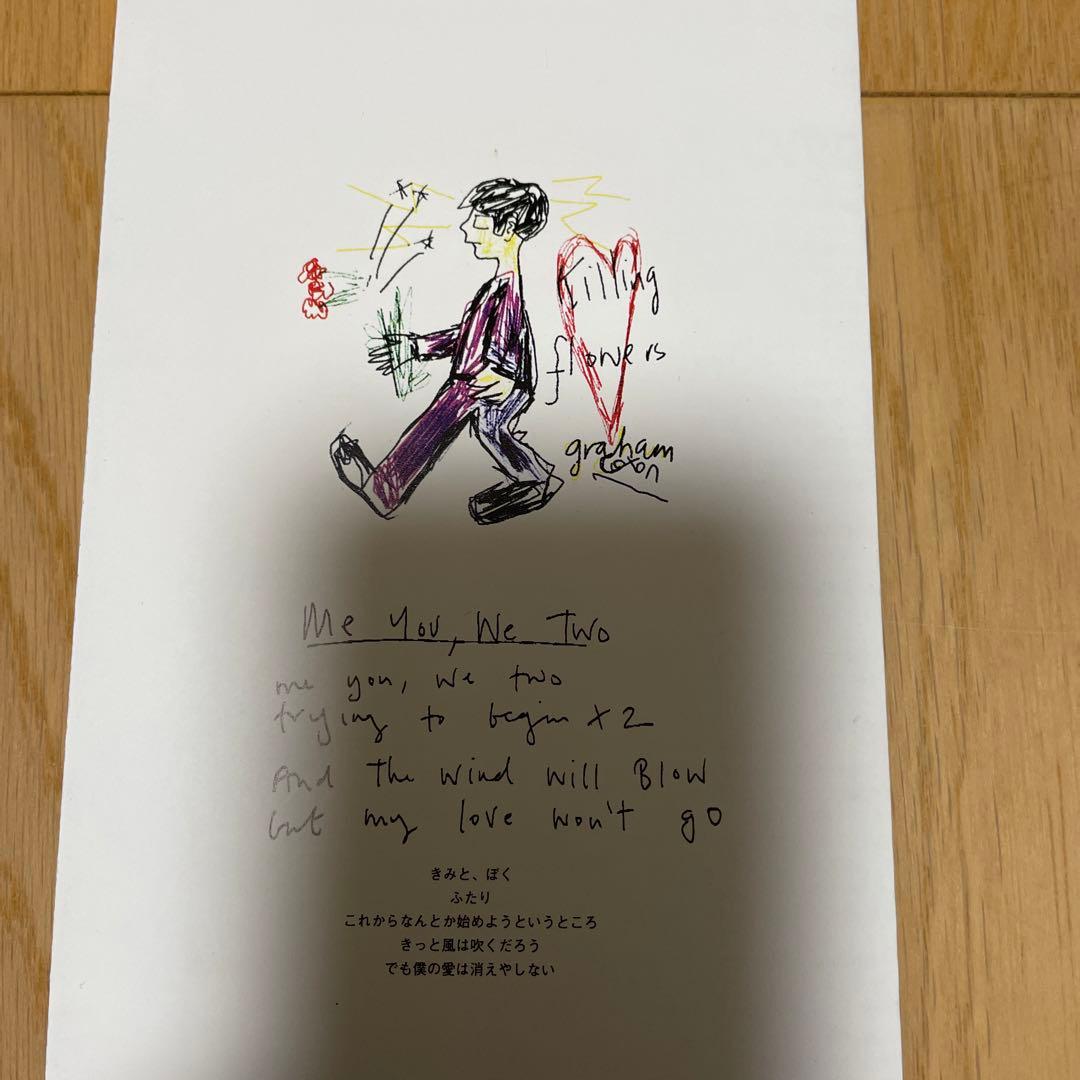 killing
flowers
graham
coxon
Me You, We Two
me you, we two
trying to begin x 2
And the wind will Blow
but my love won't go
きみと、ぼく
ふたり
これからなんとか始めようというところ
きっと風は吹くだろう
でも僕の愛は消えやしない